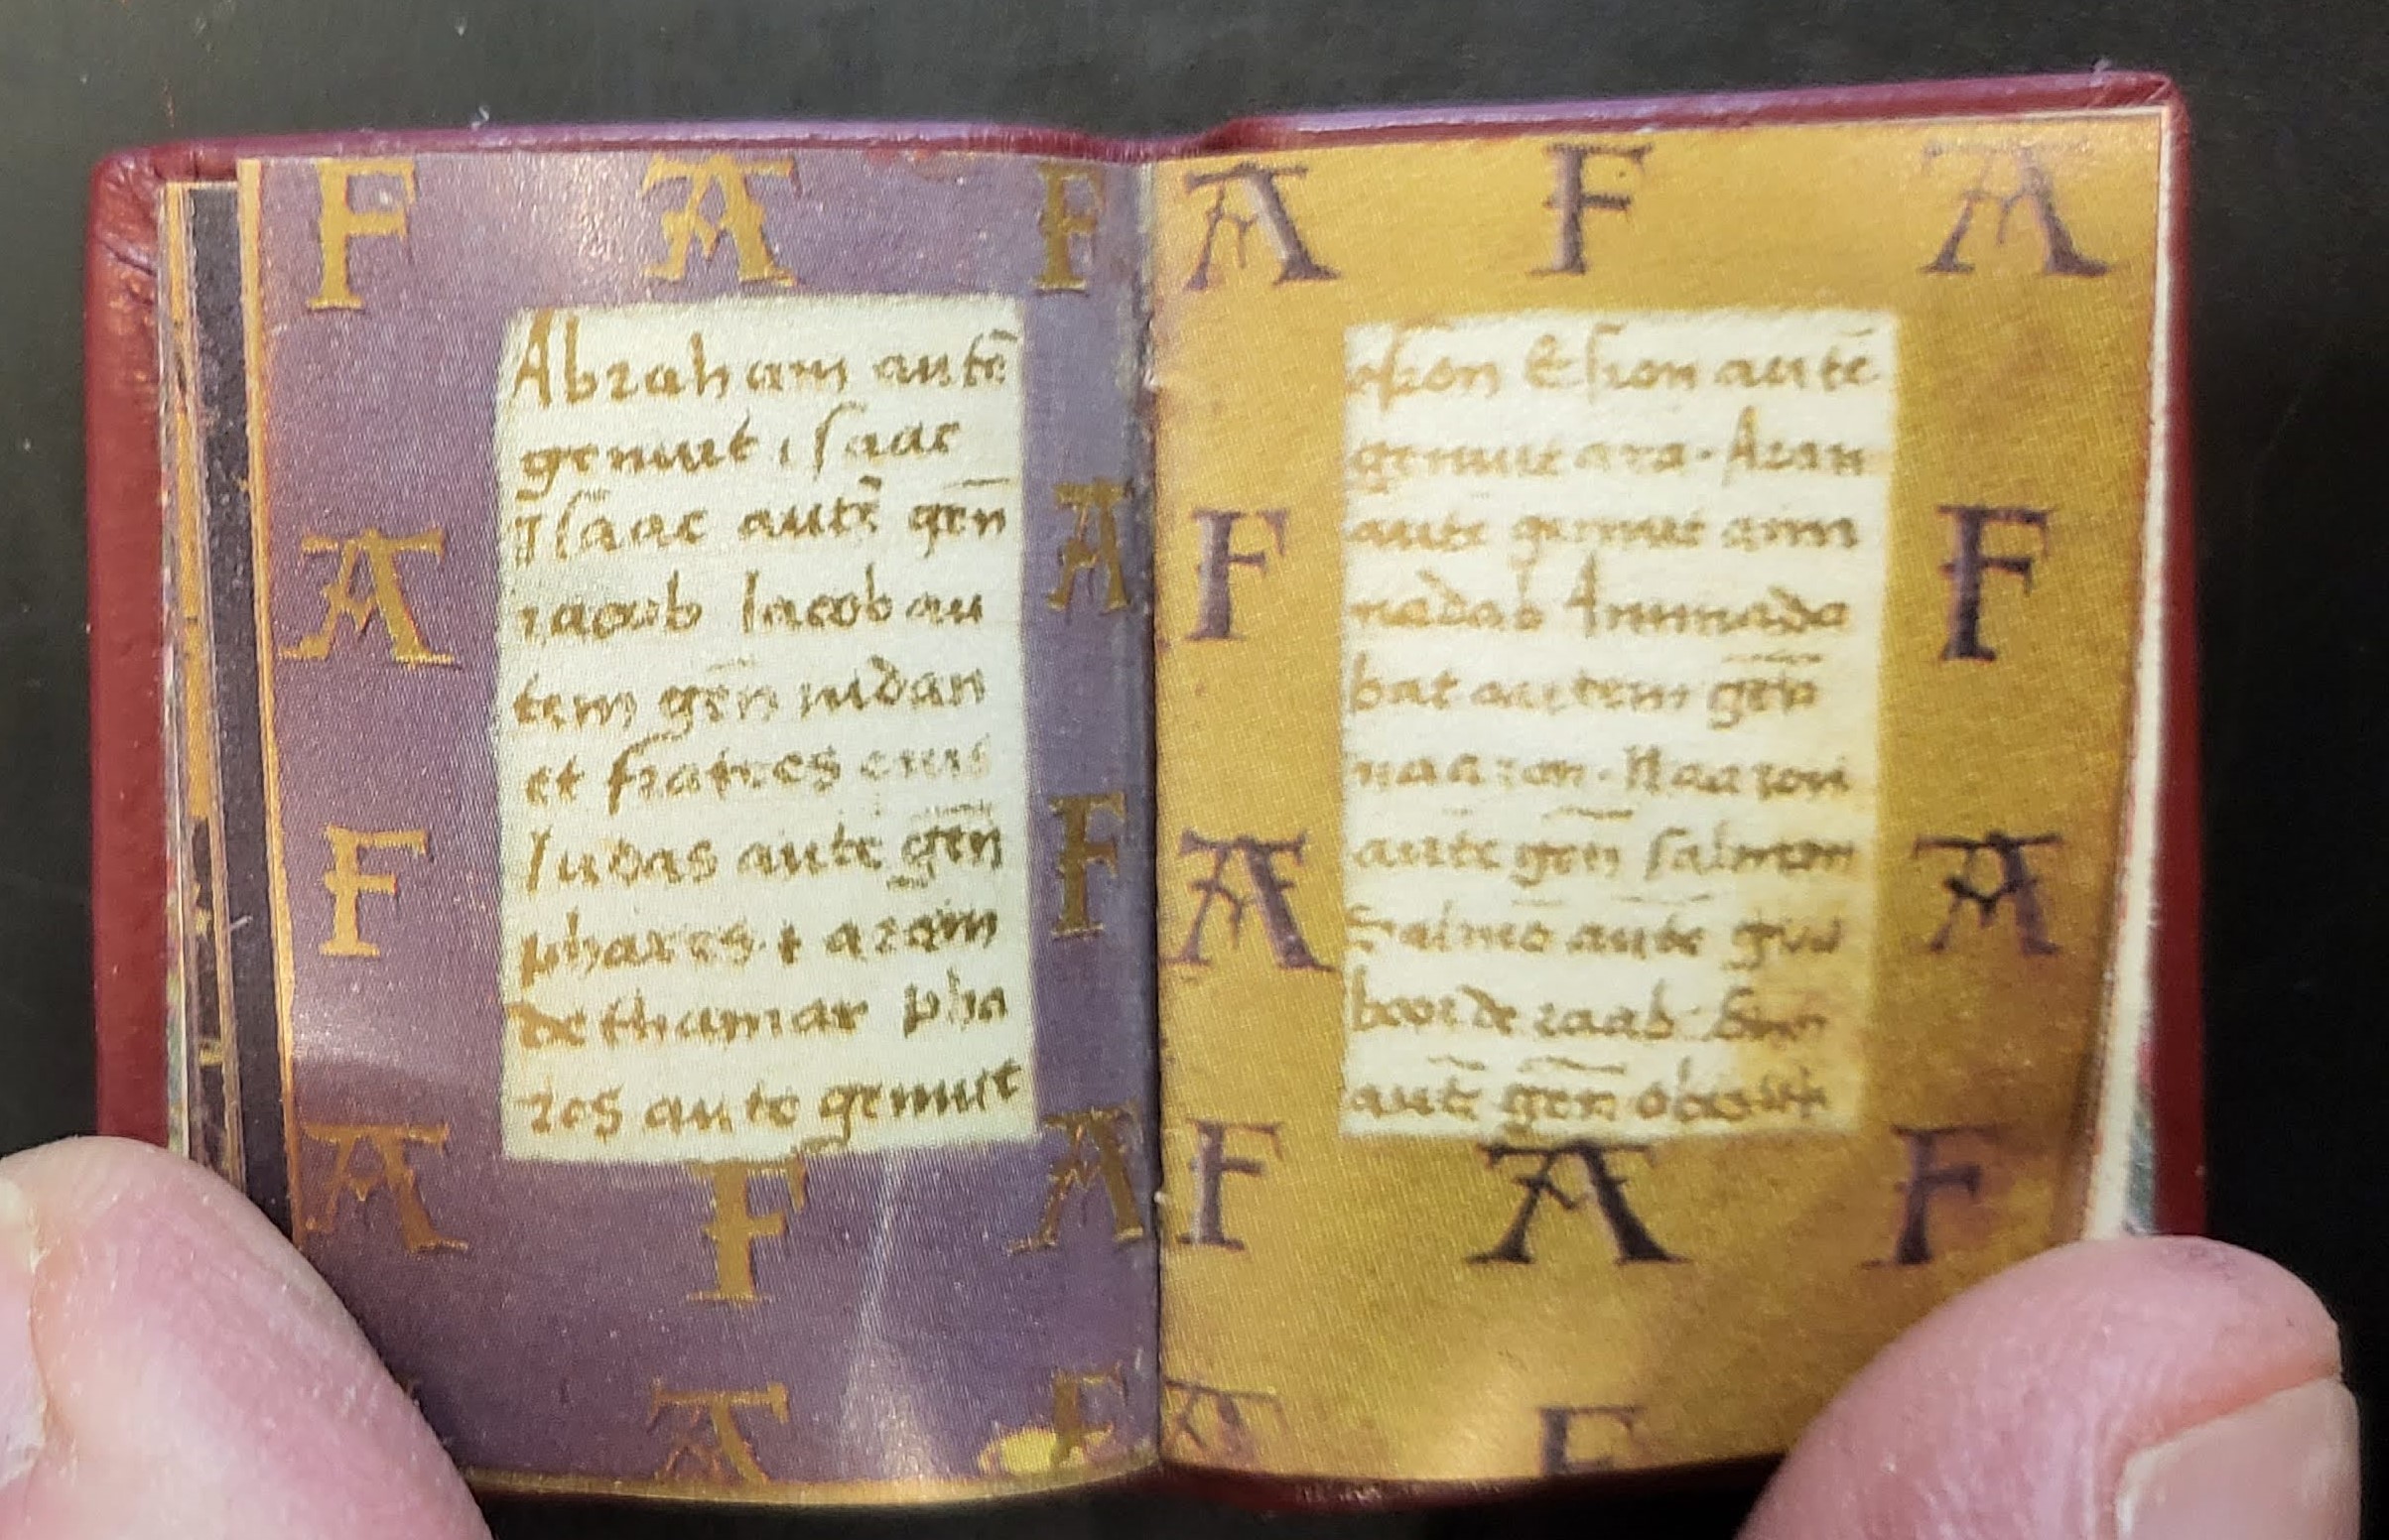 F A F
Abraham autē
genuit isaac
Isaac autē gēn
iacob Iacob au
tem gēn iudan
et fratres eius
Iudas aute gēn
phares. & aram
de thamar pha
res aute genuit
A
F
A
A
F
A
F
A F
A F
esron Esron autē
genuit ara. Aran
aute genuit amı
nadab Aminada
bat autem gēn
naason. Naason
aute gēn salmon
Salmo aute gēn
booz de raab
autē gēn obeth
F
A
F
F
A
A F A
A F